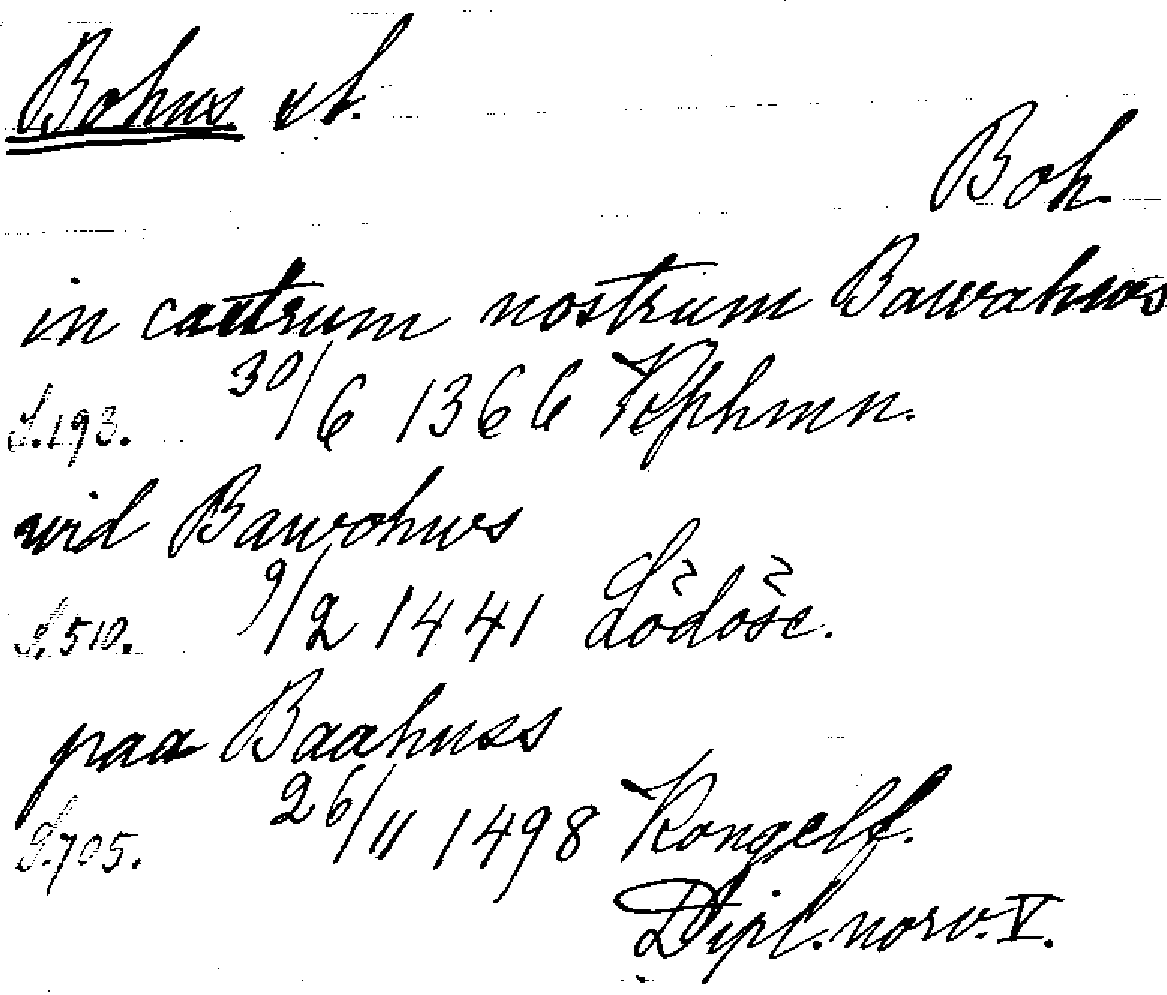 Bohus sl.
Boh
in castrum nostrum Bawahws
S. 193. 30/6 1366 Kphmn.
wid Bawohws
S. 510. 9/2 1441 Lödöse.
paa Baahuss
S. 705. 26/11 1498 Kongelf.
Dipl. norv. V.